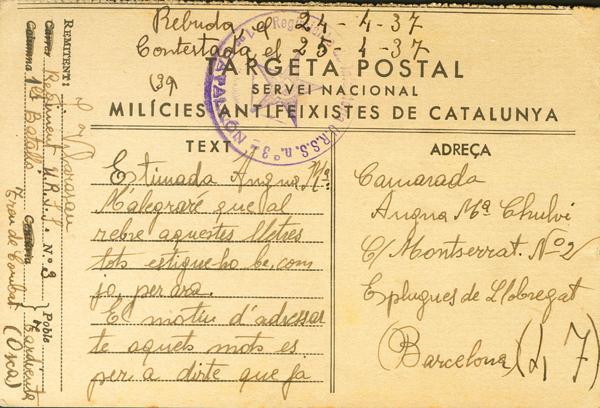 Rebuda, el 24-4-37
Contestada el 25-4-37
(39)
TARGETA POSTAL
SERVEI NACIONAL
MILÍCIES ANTIFEIXISTES DE CATALUNYA
TEXT
Estimada Angna Mª
M'alegraré que al
rebre aquestes lletres
tots estigue-ho be, com
jo, per ara.
El motiu d'adressar
te aquets mots es
per a dirte que ja
ADREÇA
Camarada
Angna Mª Chulvi
C/ Montserrat. Nº 2
Esplugues de Llobregat
(Barcelona)
(L, 7)
REMITENT:
Carrer Regiment U.R.S.S. Nº 3
Poble Tardienta
Columna 1er Batalló
Centúria
Tren de Combat
(Osca)
U.R.S.S. nº 3